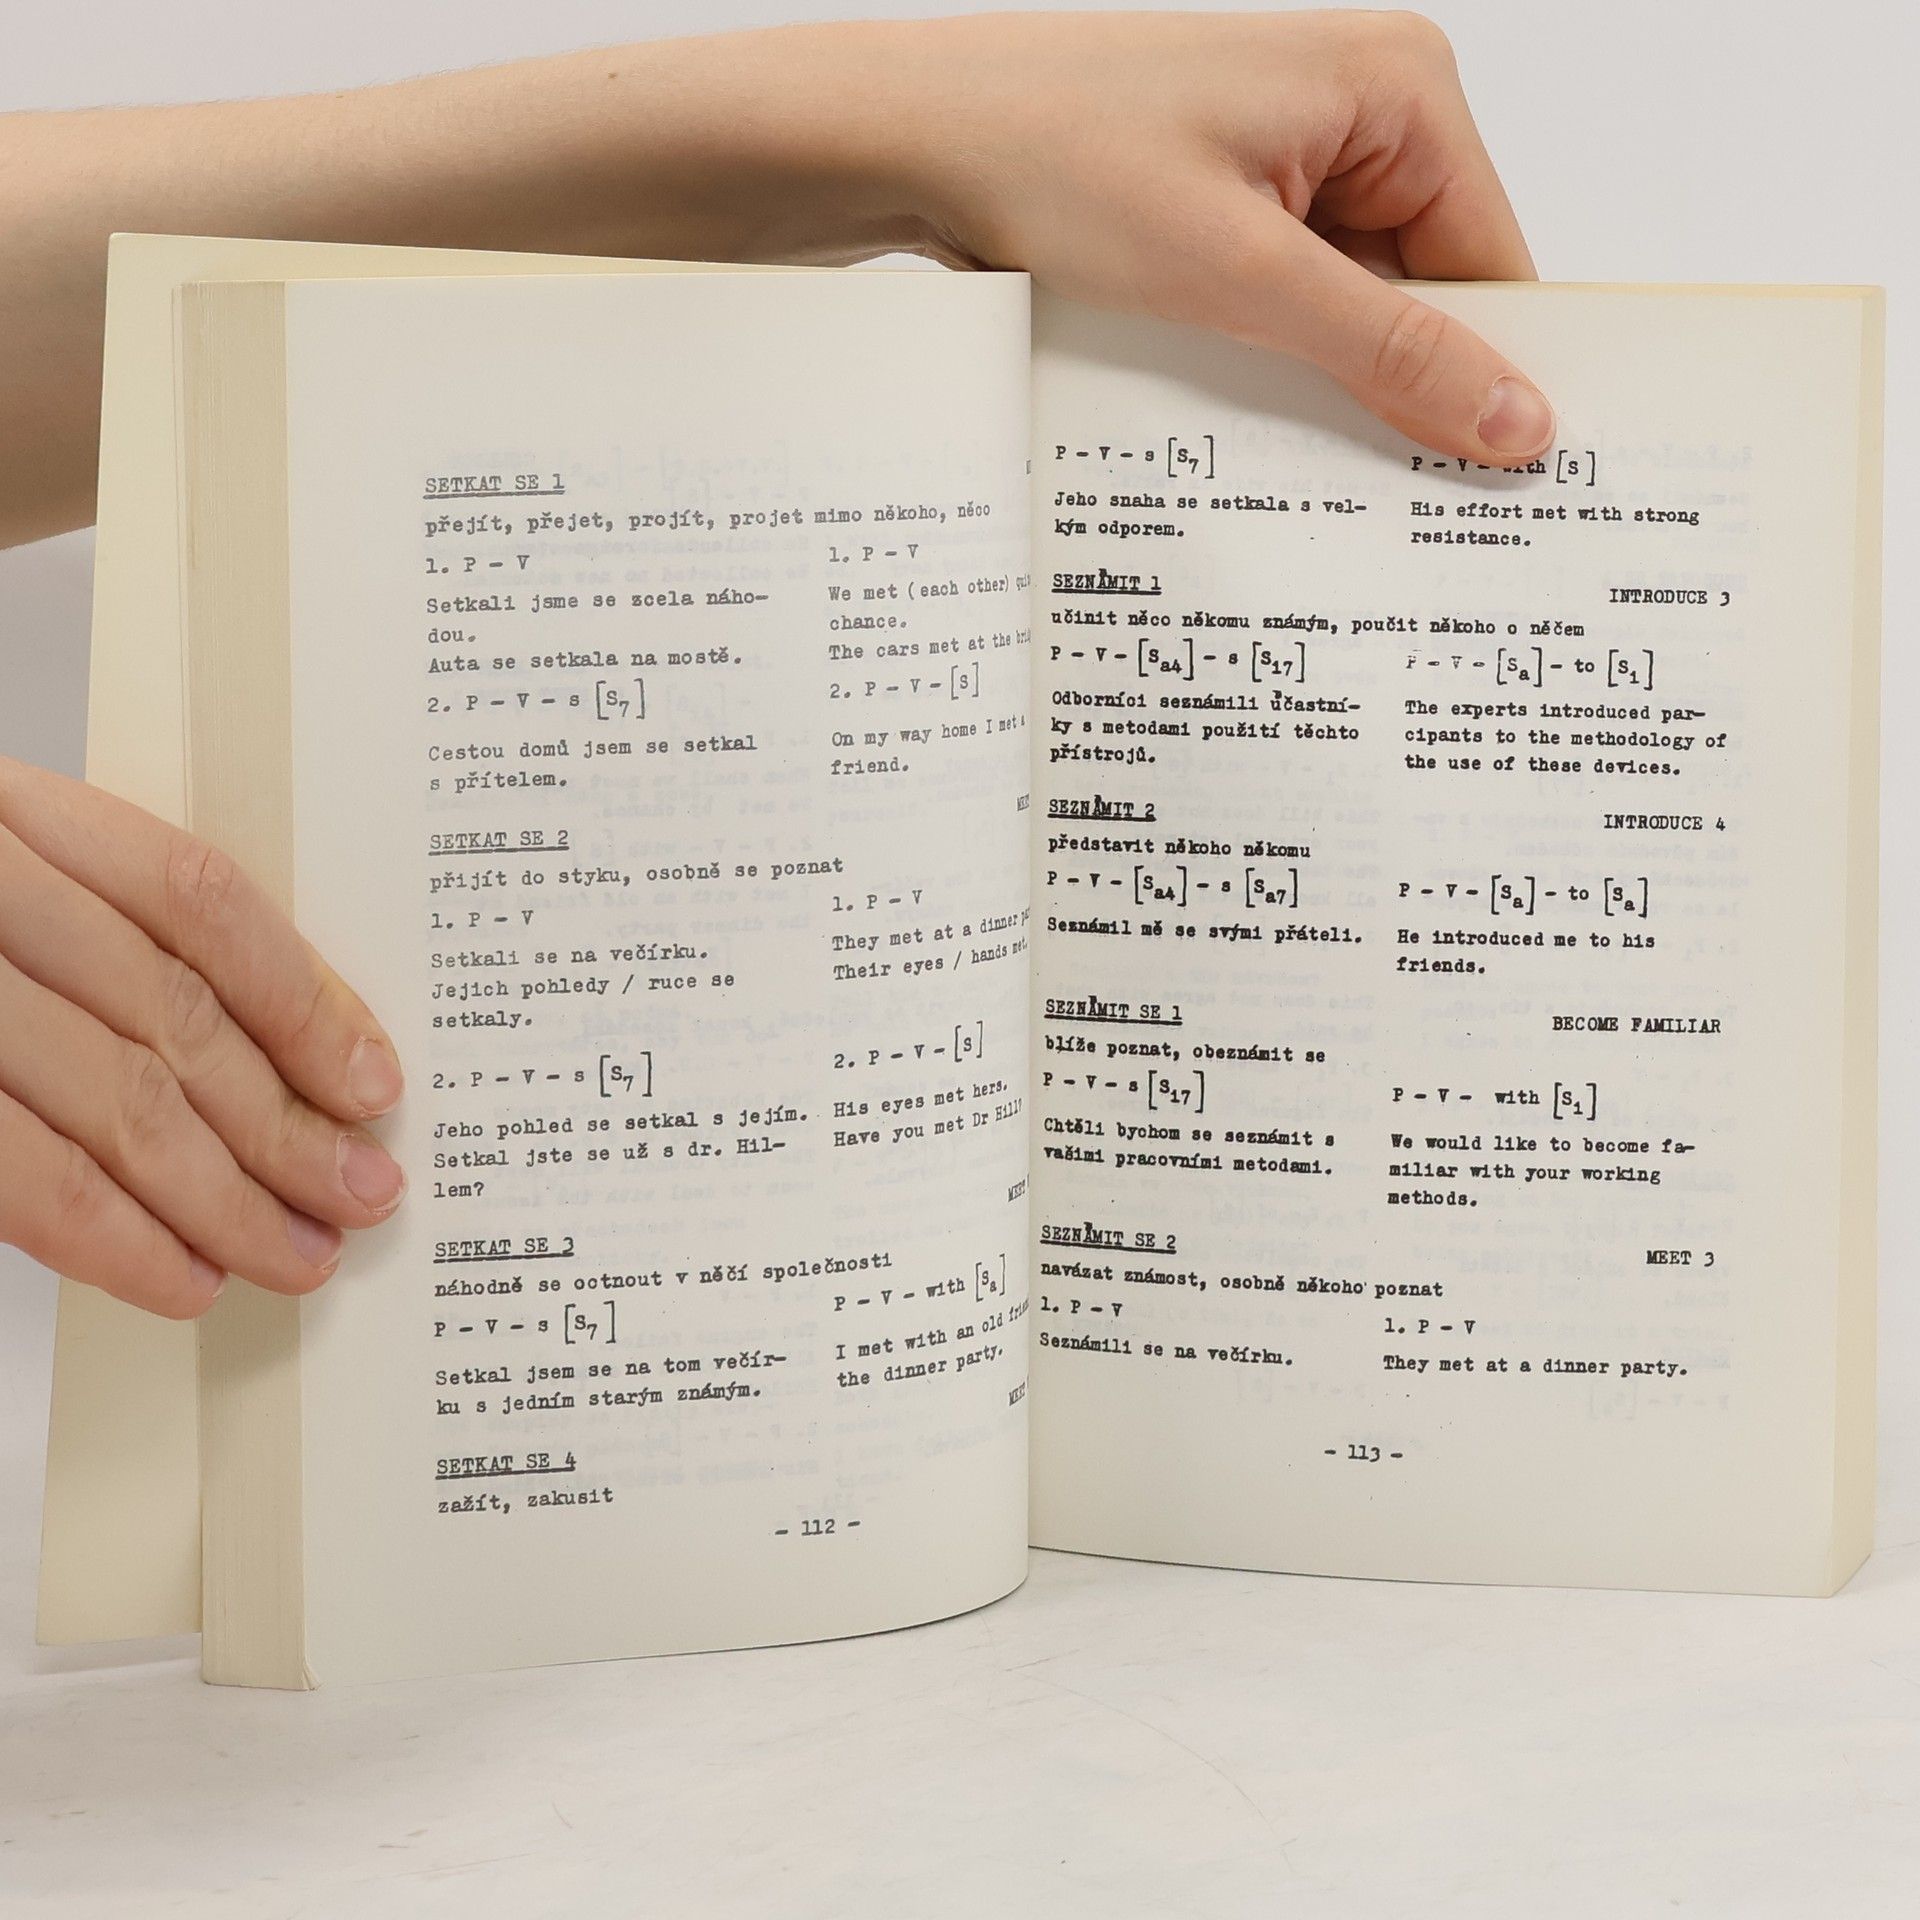 SETKAT SE 1
přejít, přejet, projít, projet mimo někoho, něco
1. P - V
Setkali jsme se zcela náho-
dou.
Auta se setkala na mostě.
2. P - V - s [S7]
Cestou domů jsem se setkal
s přítelem.
1. P - V
We met (each other)
chance.
The cars met at the
2. P - V - [S]
On my way home I met a
friend.
SETKAT SE 2
přijít do styku, osobně se poznat
1. P - V
Setkali se na večírku.
Jejich pohledy / ruce se
setkaly.
2. P - V - s [S7]
Jeho pohled se setkal s jejím.
Setkal jste se už s dr. Hil-
lem?
1. P - V
They met at a dinner
Their eyes / hands met.
2. P - V - [S]
His eyes met hers.
Have you met Dr Hill?
MEET
SETKAT SE 3
náhodně se octnout v něčí společnosti
P - V - s [S7]
Setkal jsem se na tom večír-
ku s jedním starým známým.
P - V - with [Sa]
I met with an old
the dinner party.
MEET
SETKAT SE 4
zažít, zakusit
- 112 -
P - V - s [S7]
Jeho snaha se setkala s vel-
kým odporem.
P - V - with [S]
His effort met with strong
resistance.
SEZNÁMIT 1
INTRODUCE 3
učinit něco někomu známým, poučit někoho o něčem
P - V - [Sa4] - s [S17]
Odborníci seznámili účastní-
ky s metodami použití těchto
přístrojů.
P - V - [Sa] - to [Si]
The experts introduced par-
cipants to the methodology of
the use of these devices.
SEZNÁMIT 2
INTRODUCE 4
představit někoho někomu
P - V - [Sa4] - s [Sa7]
Seznámil mě se svými přáteli.
P - V - [Sa] - to [Sa]
He introduced me to his
friends.
SEZNÁMIT SE 1
BECOME FAMILIAR
blíže poznat, obeznámit se
P - V - s [S17]
Chtěli bychom se seznámit s
vašimi pracovními metodami.
P - V - with [Si]
We would like to become fa-
miliar with your working
methods.
SEZNÁMIT SE 2
MEET 3
navázat známost, osobně někoho poznat
1. P - V
Seznámili se na večírku.
1. P - V
They met at a dinner party.
- 113 -